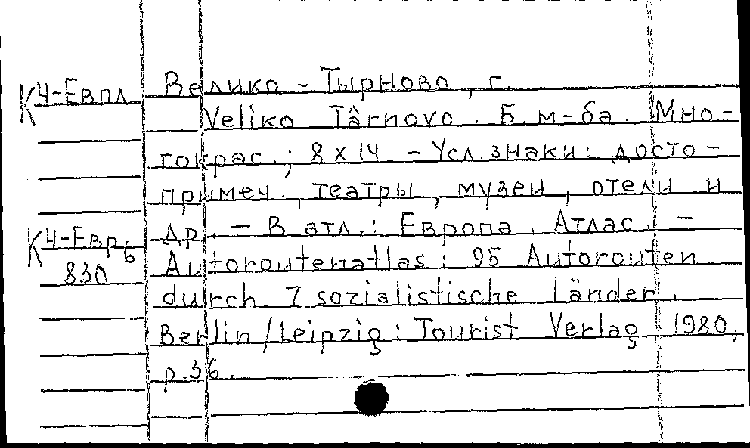 К4-Евпл
Велико-Тырново, г.
Veliko Târnovo. Б. м-ба. Мно-
гокрас.; 8 x 14. - Усл. знаки: досто-
примеч., театры, музеи, отели и
К4-Евр6
830
др. - В атл.: Европа. Атлас. -
Autoroutenatlas: 95 Autorouten
durch 7 sozialistische Länder.
Berlin/Leipzig: Tourist Verlag 1980,
p. 36.